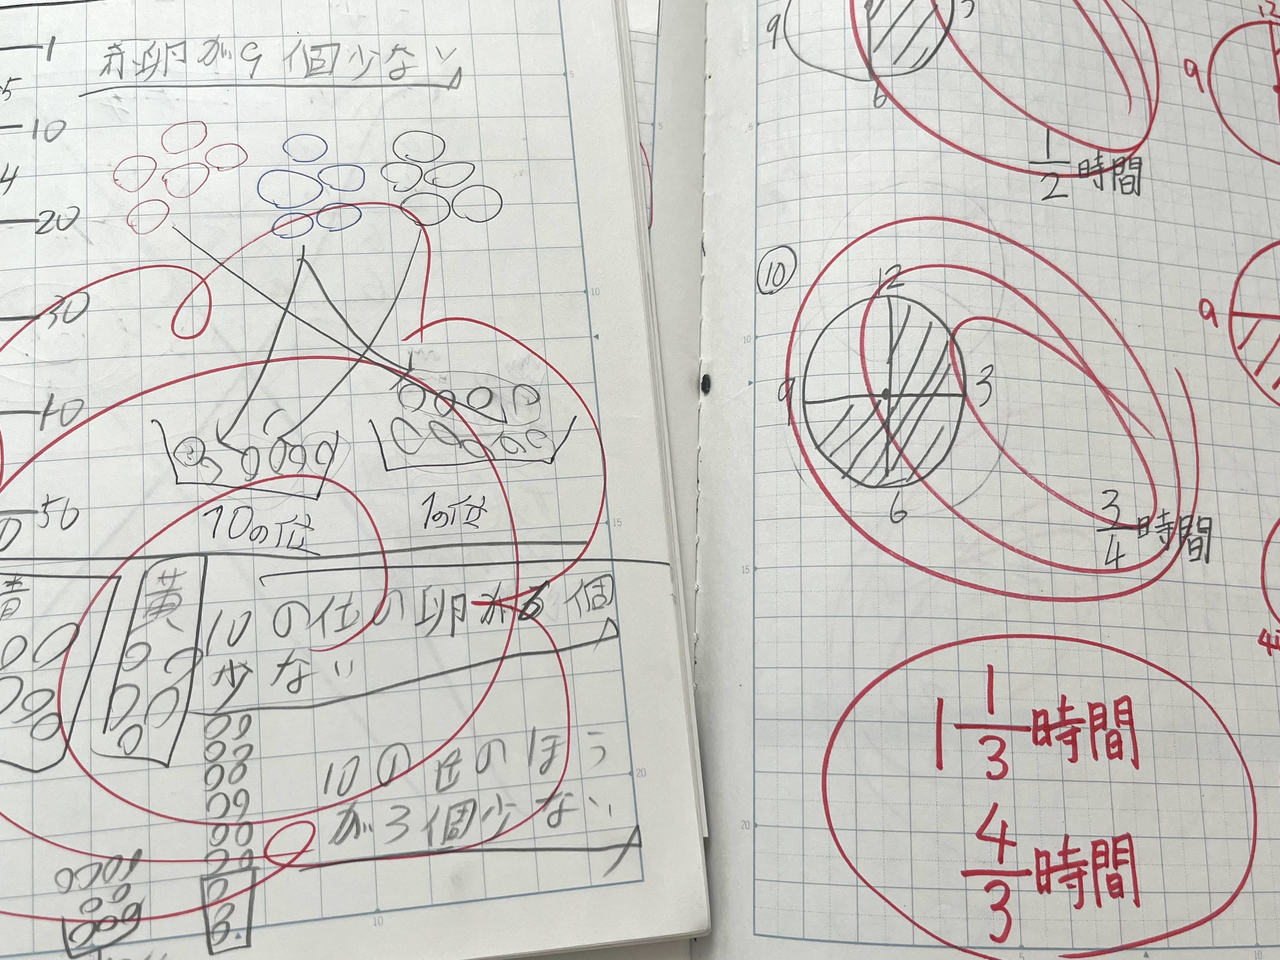 1
卵が9個少ない
5
10
4
20
30
10
50
10の位
1の位
青
黄
10の位の卵が 個
少ない
10の位のほう
が3個少ない
9
3
6
1/2時間
⑩
12
9
3
6
3/4時間
1 1/3時間
4/3時間
12
9
9